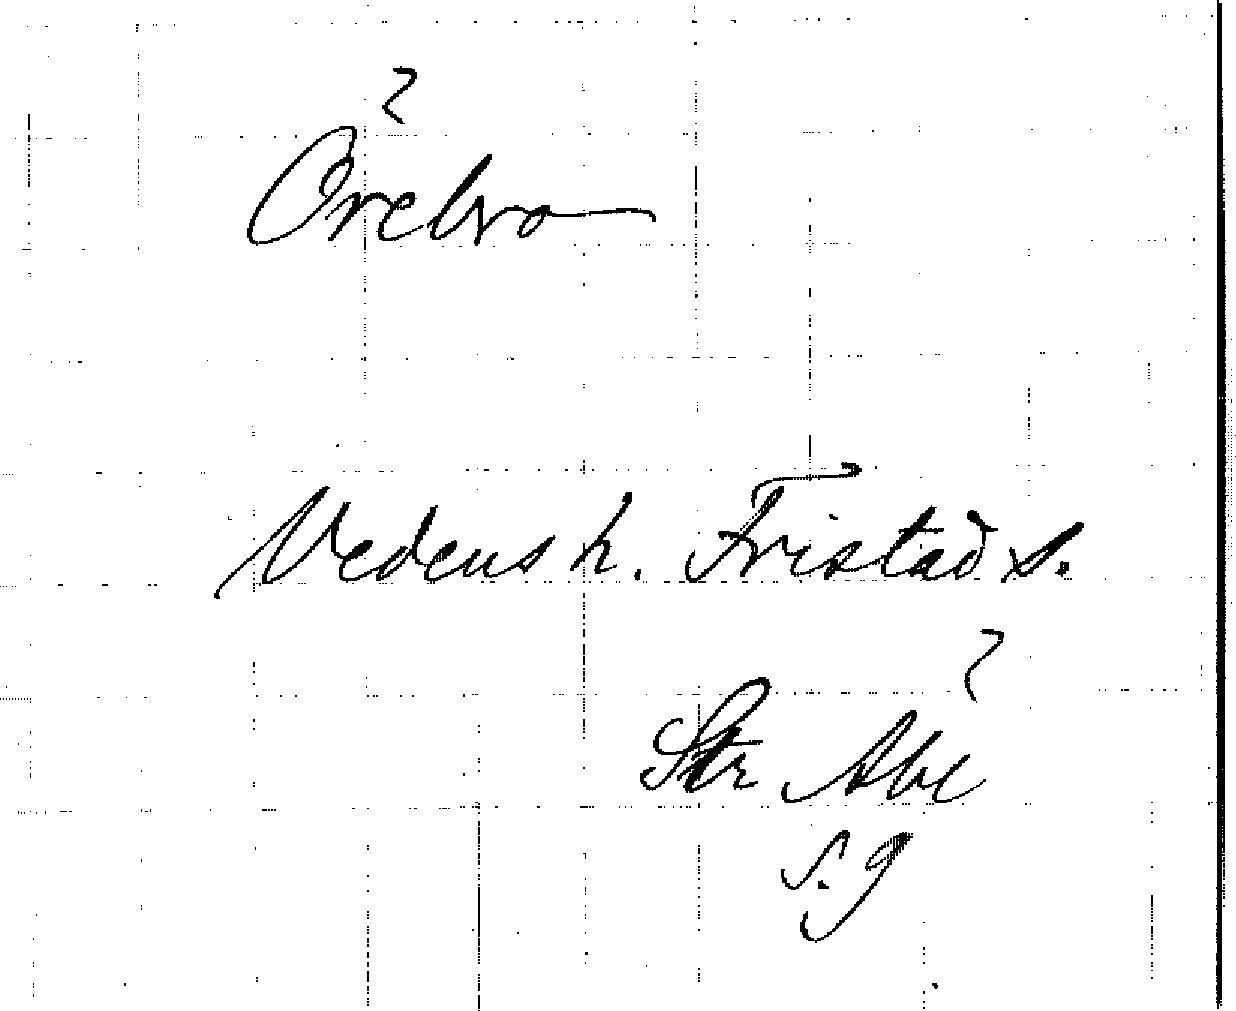 Örebro
Vedens h. Fristad s.
Str Abe
s. 9